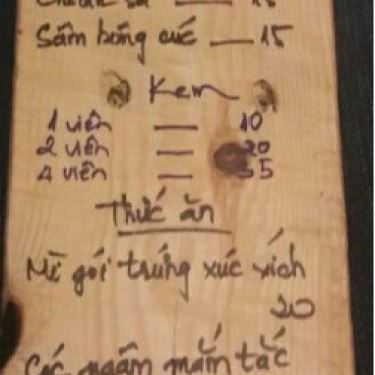 Chanh sả — 15
Sâm bông cúc — 15
Kem
1 viên — 10
2 viên — 20
4 viên — 35
Thức ăn
Mì gói trứng xúc xích
20
Cóc ngâm mắm tắc